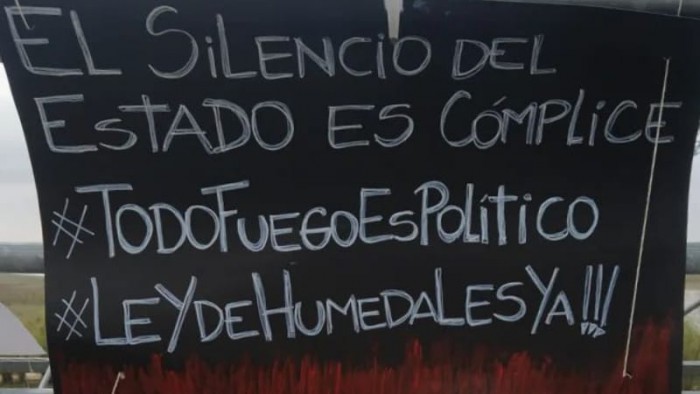 EL SiLENCIO DEL
ESTADO ES CÓMPLICE
#TODOFUEGOESPOLÍTICO
#LEYDEHUMEDALESYA!!!